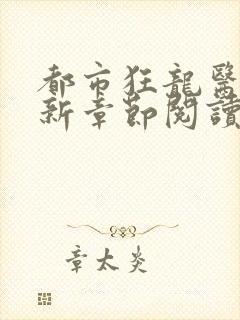 都市狂龍醫
新章節閱讀
章太炎